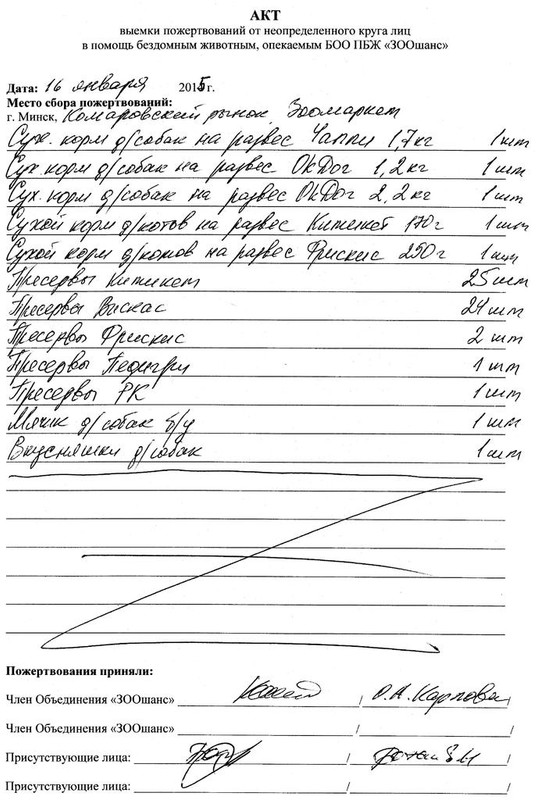 АКТ
выемки пожертвований от неопределенного круга лиц
в помощь бездомным животным, опекаемым БОО ПБЖ «ЗООшанс»
Дата: 16 января 2015 г.
Место сбора пожертвований:
г. Минск, Комаровский рынок, Зоомаркет
Сух. корм д/собак на развес Чаппи 1,7кг 1шт
Сух. корм д/собак на развес ОкДог 1,2кг 1шт
Сух. корм д/собак на развес ОкДог 2,2кг 1шт
Сухой корм д/котов на развес Китекет 170г 1шт
Сухой корм д/котов на развес Фрискис 250г 1шт
Пресервы Китикет 25шт
Пресервы Вискас 24шт
Пресервы Фрискис 2шт
Пресервы Педигри 1шт
Пресервы РК 1шт
Мячик д/собак б/у 1шт
Вкусняшки д/собак 1шт
Пожертвования приняли:
Член Объединения «ЗООшанс» / О.А. /
Член Объединения «ЗООшанс» / /
Присутствующие лица: / /
Присутствующие лица: / /